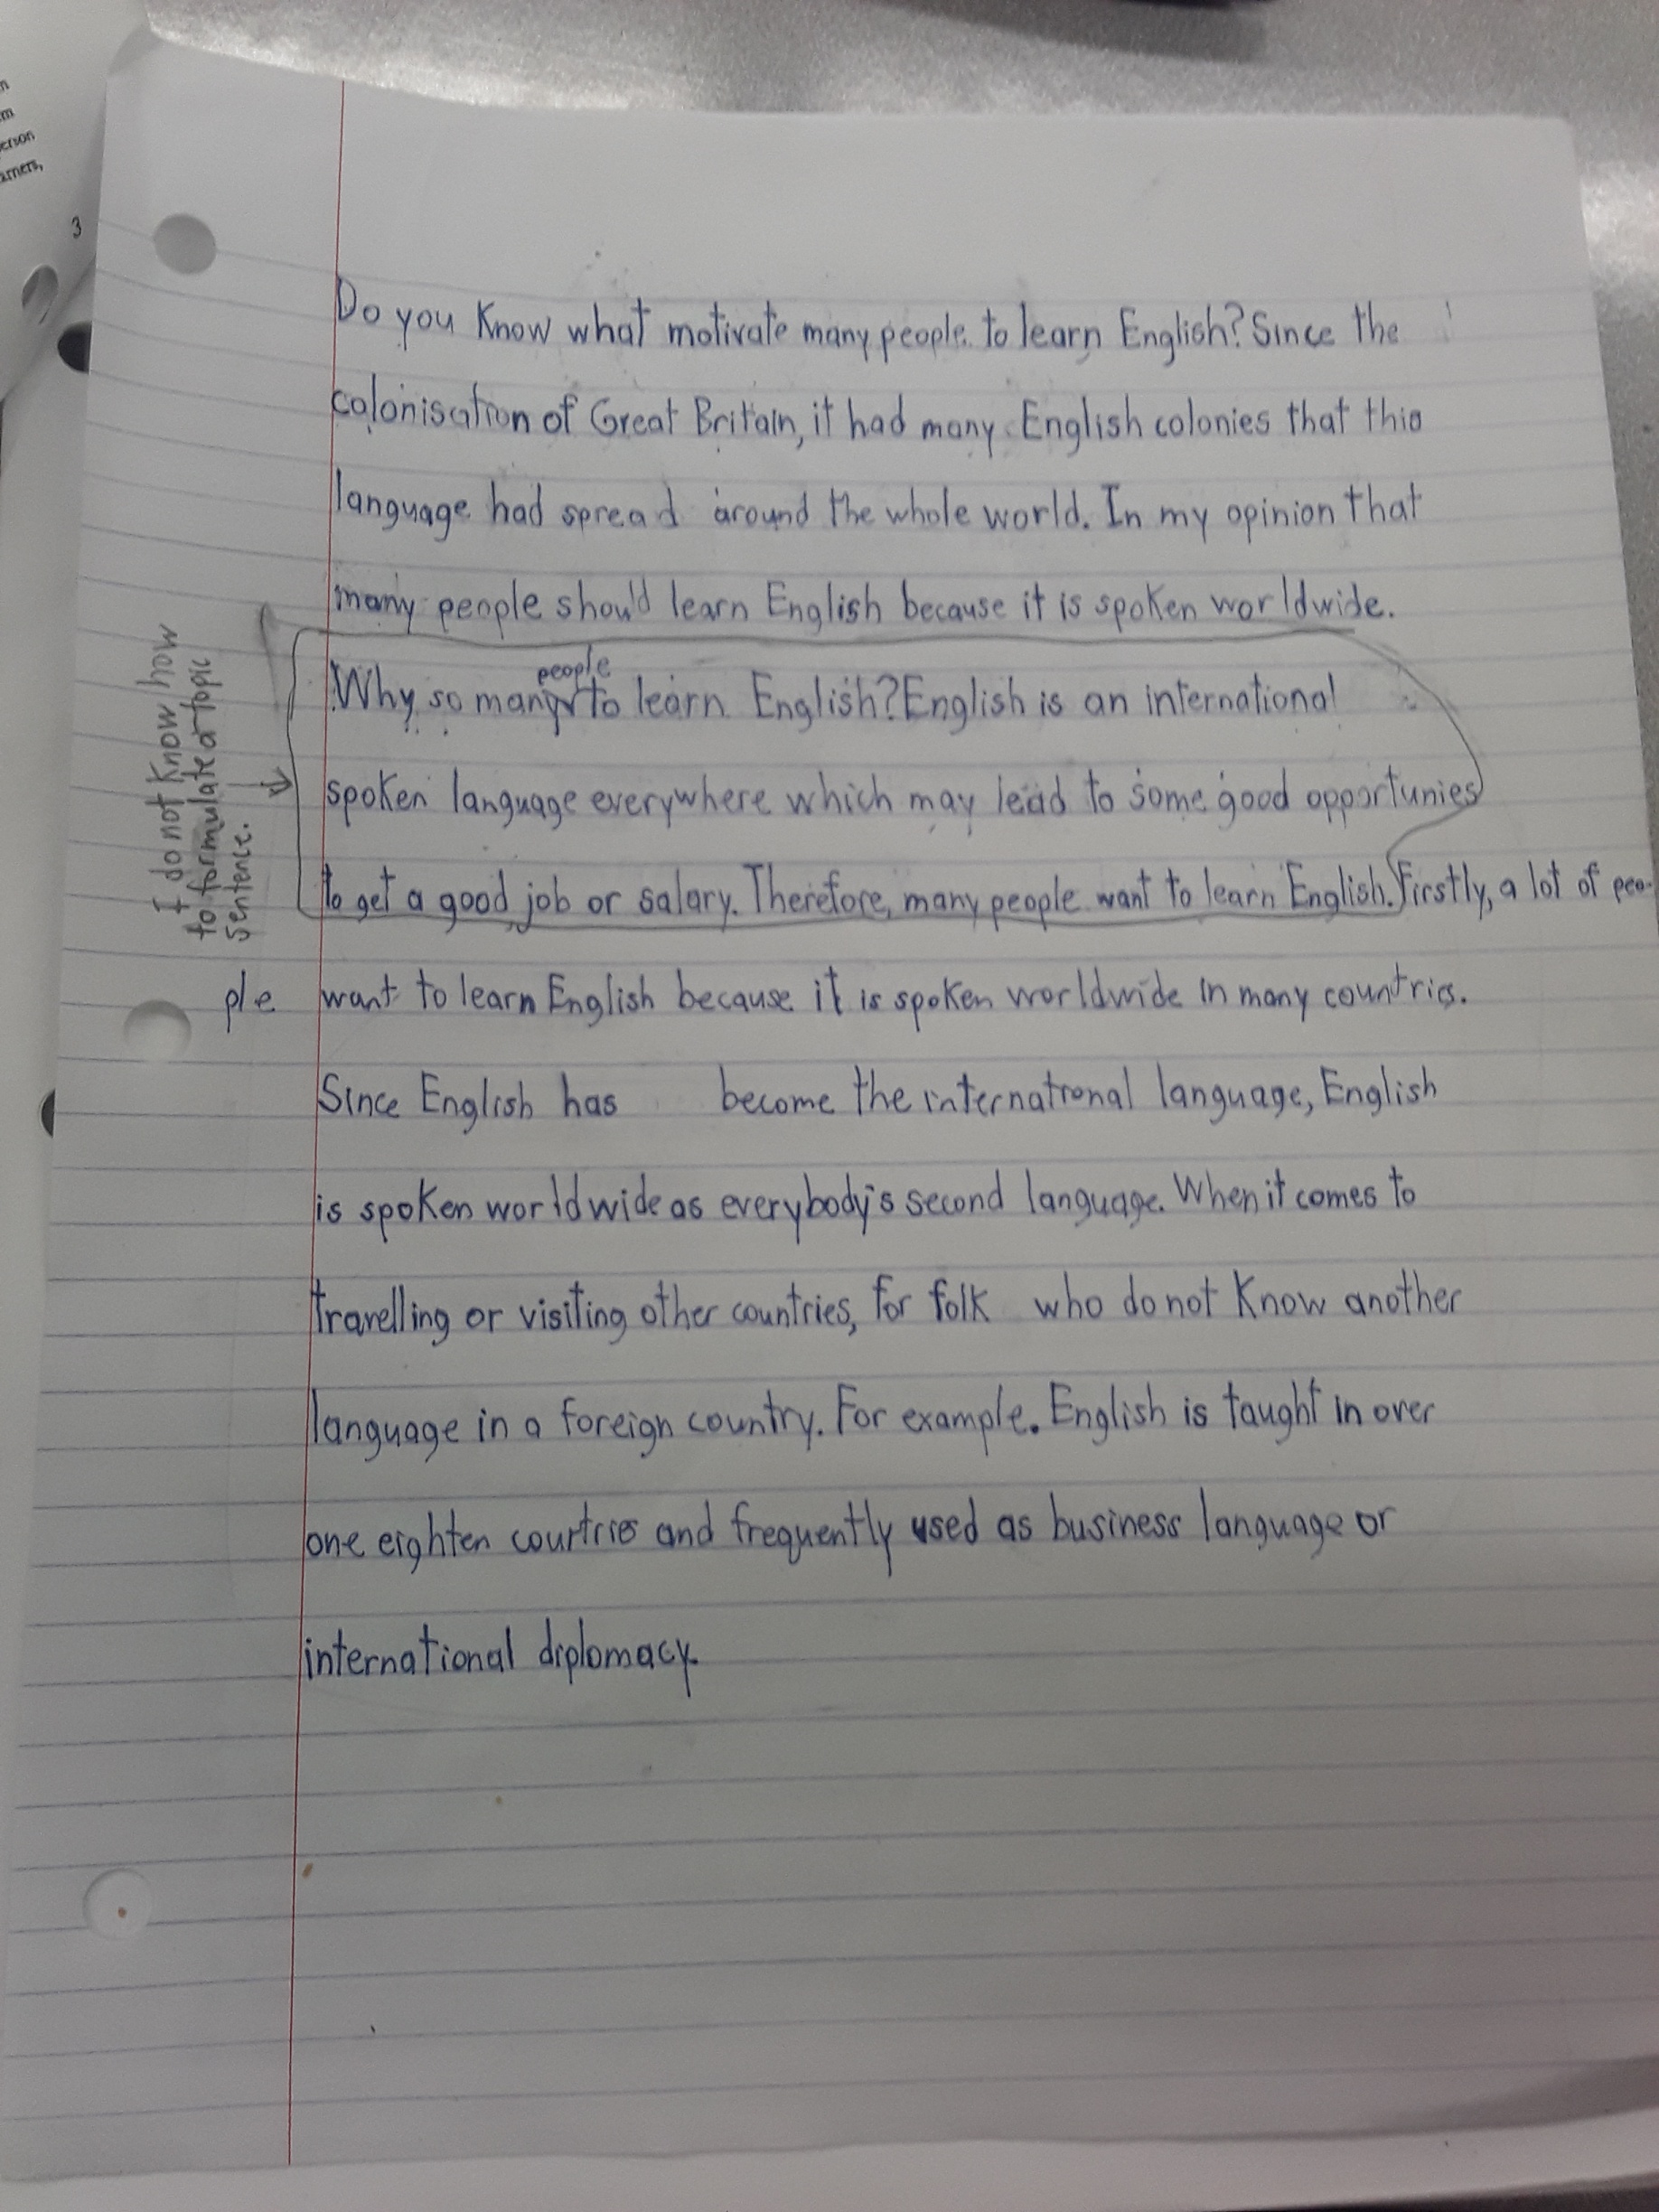 m
erson
arners,
3
Do you Know what motivate many people to learn English? Since the
colonisation of Great Britain, it had many English colonies that this
language had spread around the whole world. In my opinion that
many people should learn English because it is spoken worldwide.
people
Why so many to learn English? English is an international
spoken language everywhere which may lead to some good opportunies
to get a good job or salary. Therefore, many people want to learn English. Firstly, a lot of peo-
ple want to learn English because it is spoken worldwide in many countries.
Since English has become the international language, English
is spoken worldwide as everybody's second language. When it comes to
travelling or visiting other countries, for folk who do not Know another
language in a foreign country. For example. English is taught in over
one eighten courtries and frequently used as business language or
international diplomacy.
I do not Know how
to formulate a topic
sentence.